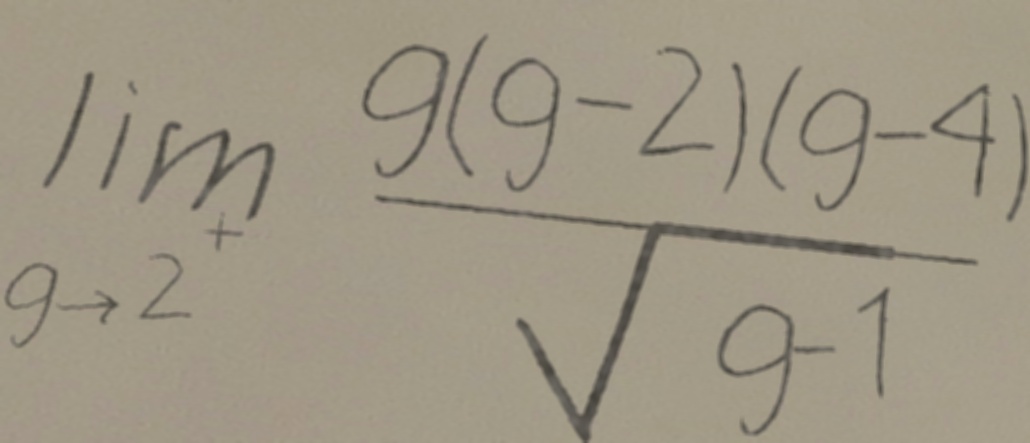 \lim_{g \to 2^+} \frac{g(g-2)(g-4)}{\sqrt{g-1}}